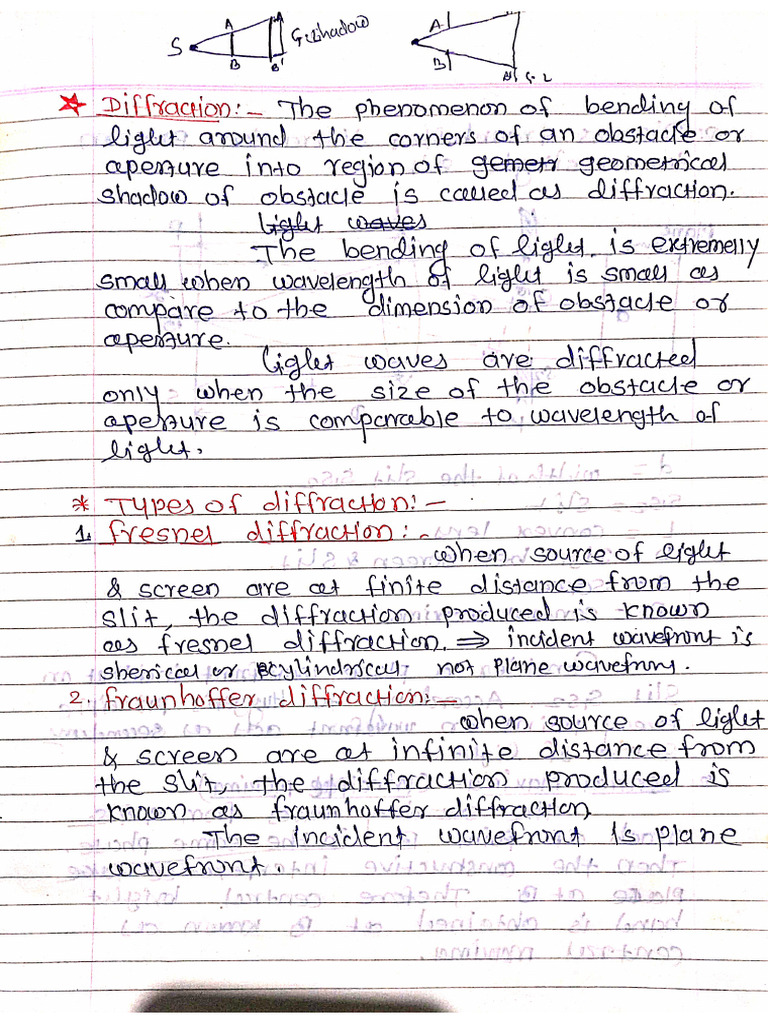 S A B A' B' G. Shadow A B A' B'
* Diffraction:- The phenomenon of bending of
light around the corners of an obstacle or
aperture into region of gemetr geometrical
shadow of obstacle is called as diffraction.
Light waves
The bending of light is extremelly
small when wavelength of light is small as
compare to the dimension of obstacle or
aperture.
Light waves are diffracted
only when the size of the obstacle or
aperture is comparable to wavelength of
light.
* Types of diffraction:-
1. Fresnel diffraction:-
when source of light
& screen are at finite distance from the
slit, the diffraction produced is known
as fresnel diffraction. ⇒ incident wavefront is
sherical or cylindrical not plane wavefront.
2. Fraunhoffer diffraction:-
when source of light
& screen are at infinite distance from
the slit the diffraction produced is
known as fraunhoffer diffraction
The incident wavefront is plane
wavefront.